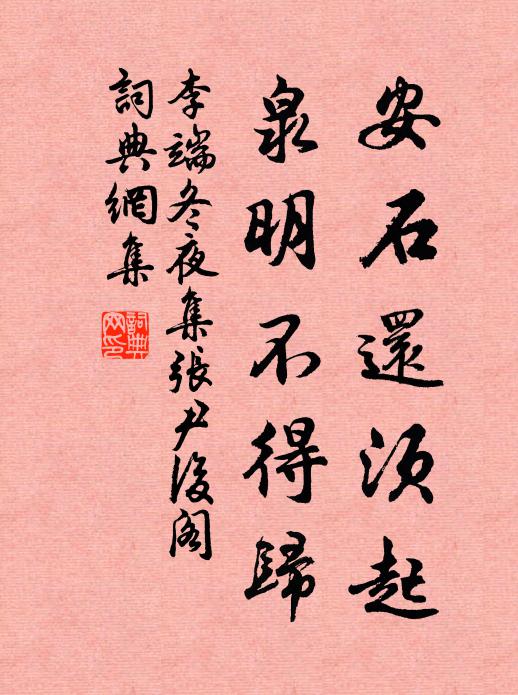 安石還須起
泉明不得歸
李端冬夜集張尹後阁
詞典網集
詞典
網印